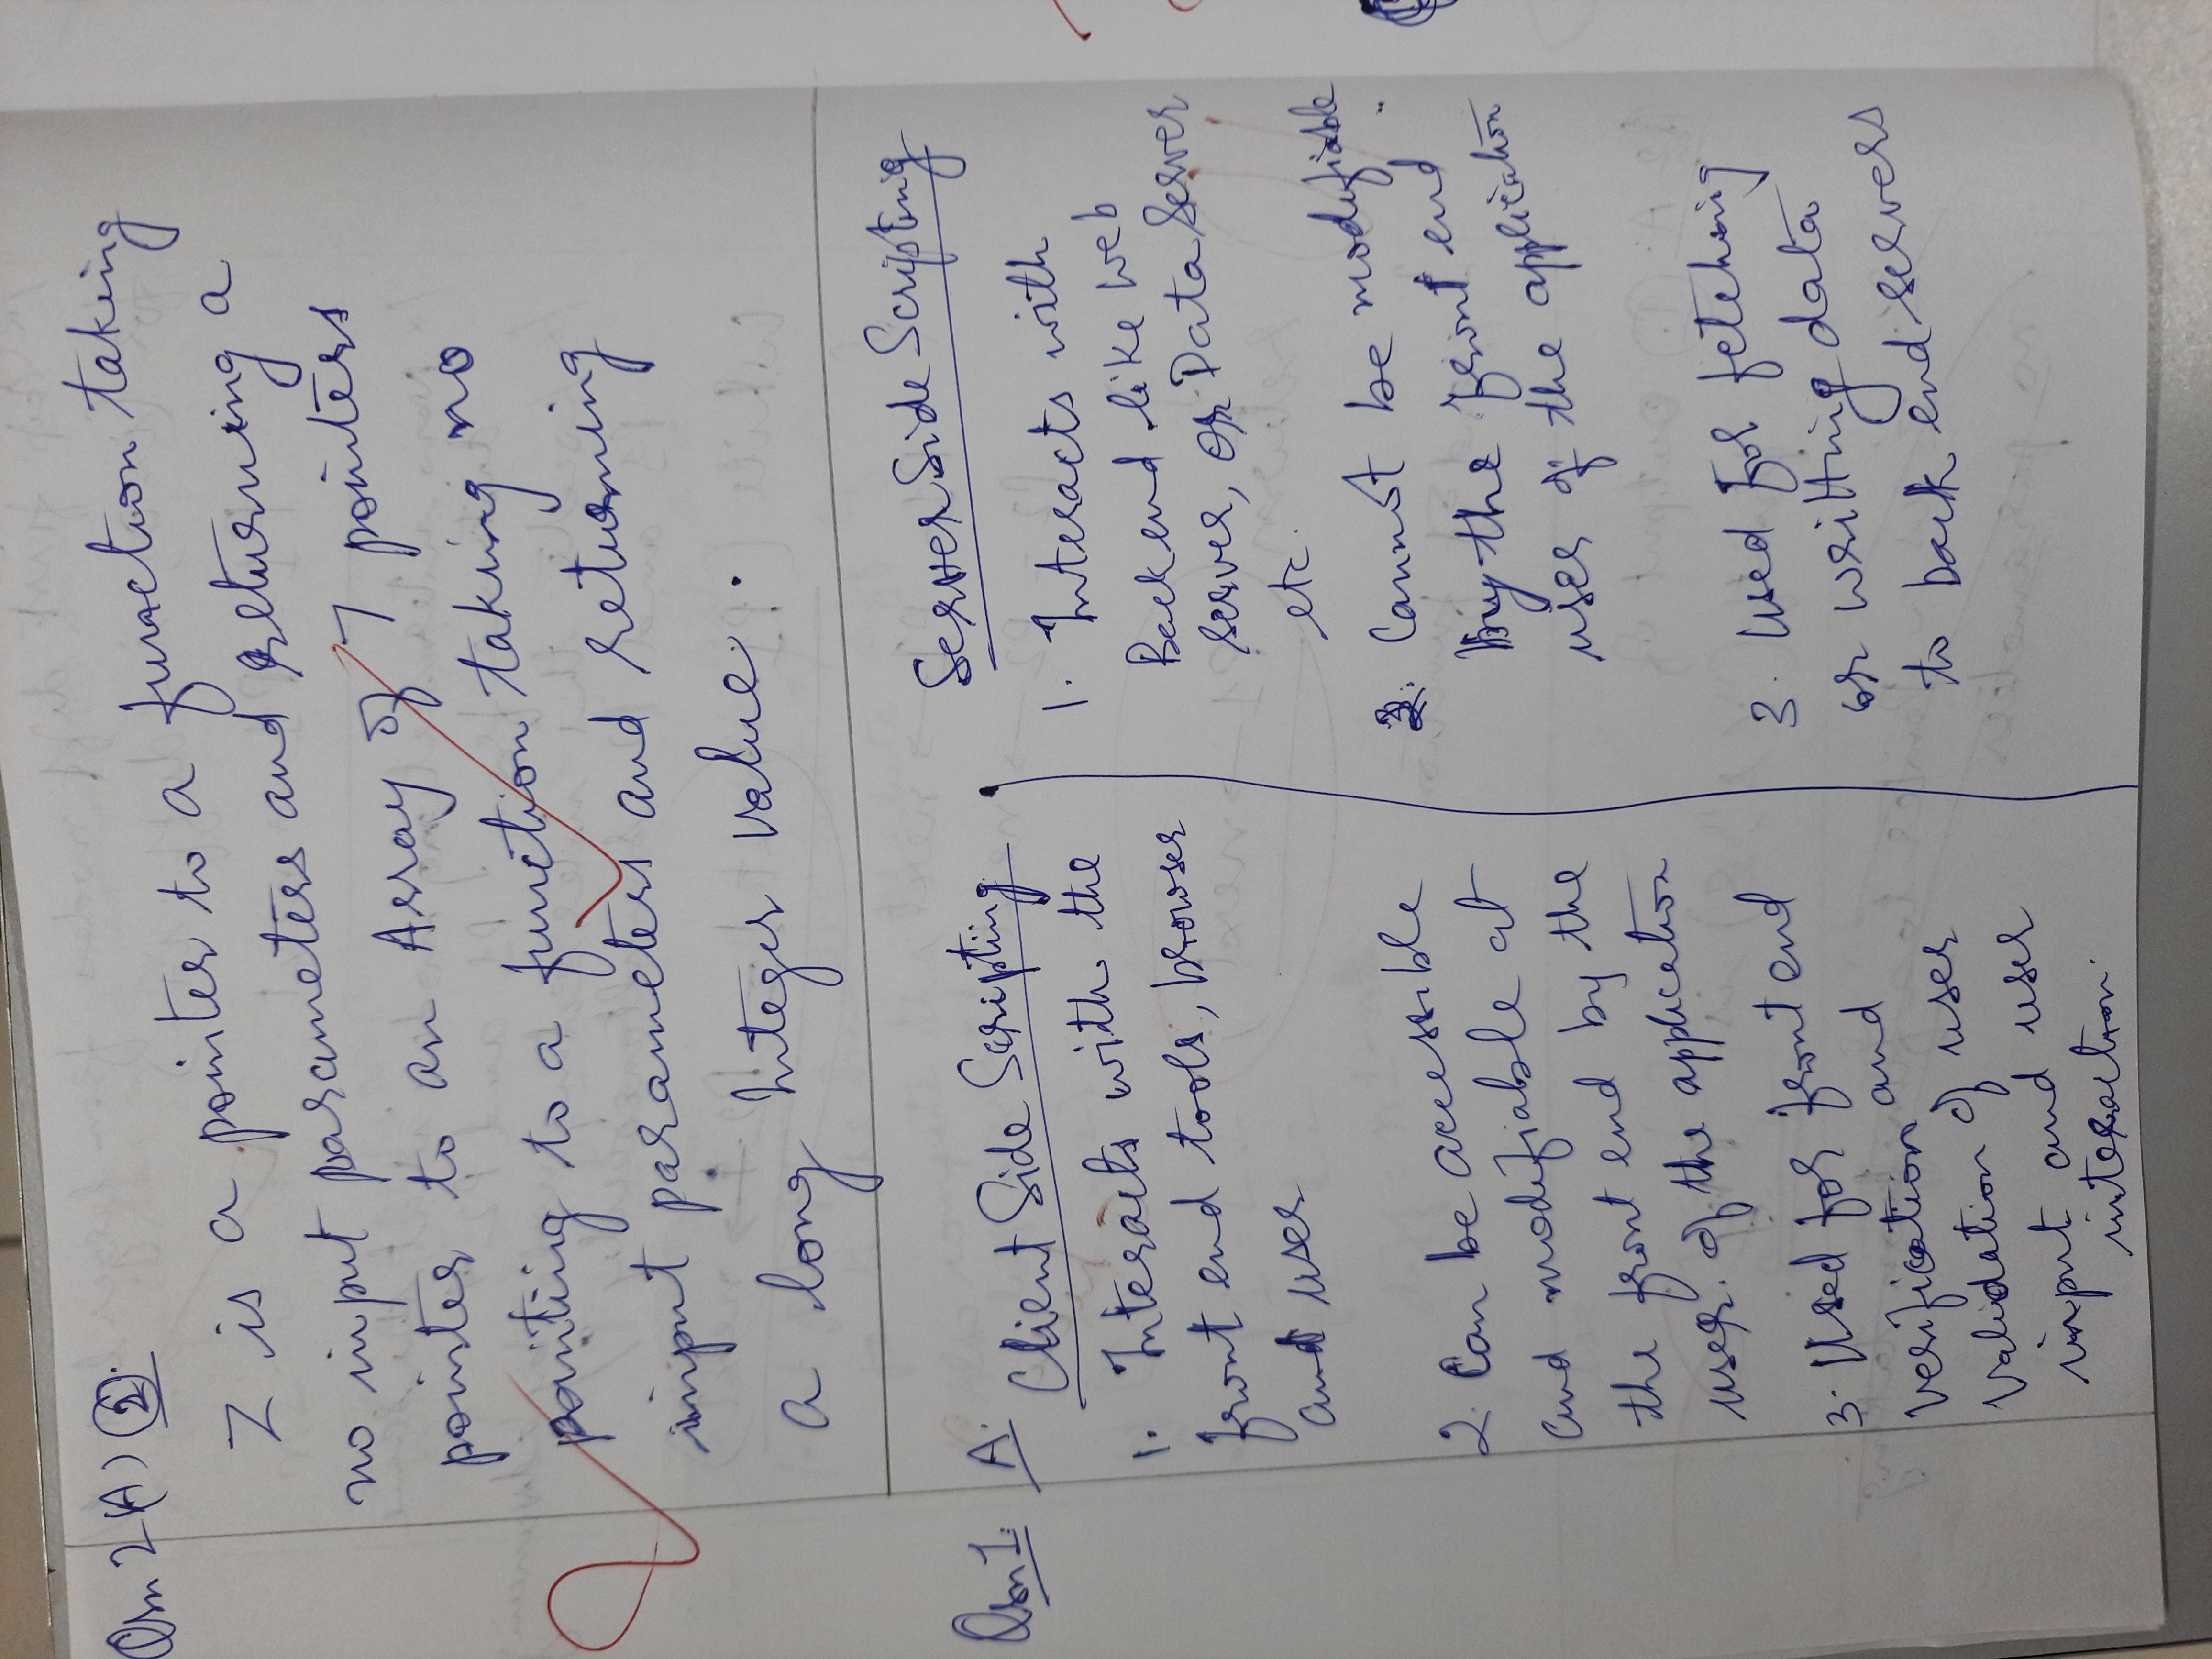 Qsn 2 (A) 2.
Z is a pointer to a function taking
no input parameters and returning a
pointer to an Array of 7 pointers
pointing to a function taking no
input parameters and returning
a long Integer value.
Qsn 1. A.
Client Side Scripting
1. Interacts with the
front end tools, browser
and user
2. Can be accessible
and modifiable at
the front end by the
user. of the application
3. Used for front end
verification and
validation of user
input and user
interaction.
Server Side Scripting
1. Interacts with
Back end like web
server, or Data Server
etc.
2. Cannot be modifiable
by the front end
user of the application
3. Used for fetching
or writting data
to back end servers